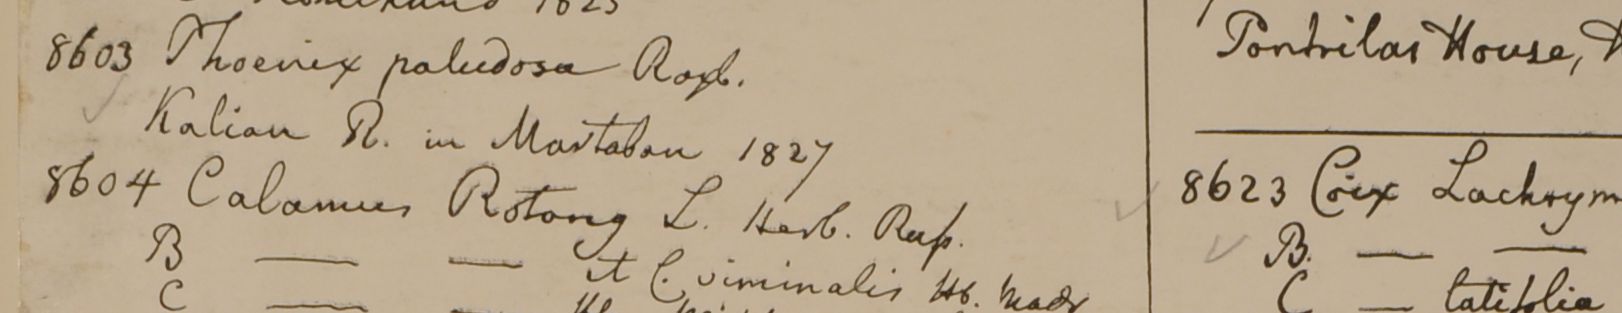 1825
8603 Phoenix paludosa Roxb.
Kalian R. in Martaban 1827
8604 Calamus Rotang L. Herb. Rusp.
B — — et C. viminalis Hb. Madr
C — —
Pontrilas House,
8623 Coix Lachrym
B. — —
C — latifolia